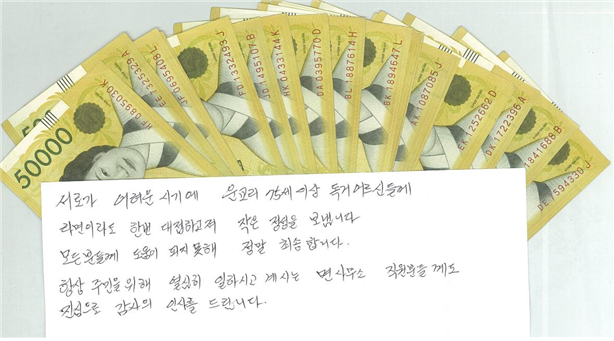 50000
0895030K
7325329A
0695408L
1332493J
JD1495107B
0433144K
DA0395770D
BL1887614H
BK1894647L
AK1087085J
EK1252662D
DK1722396A
1841688B
DE1594330J
서로가 어려운 시기에 운교리 75세이상 독거어르신들에
라면이라도 한번 대접하고져 작은 정성을 보냅니다
모든분들께 도움이 되지못해 정말 죄송합니다.
항상 주민을위해 열심히 일하시고 계시는 면사무소 직원분들께도
진심으로 감사의 인사를 드립니다.